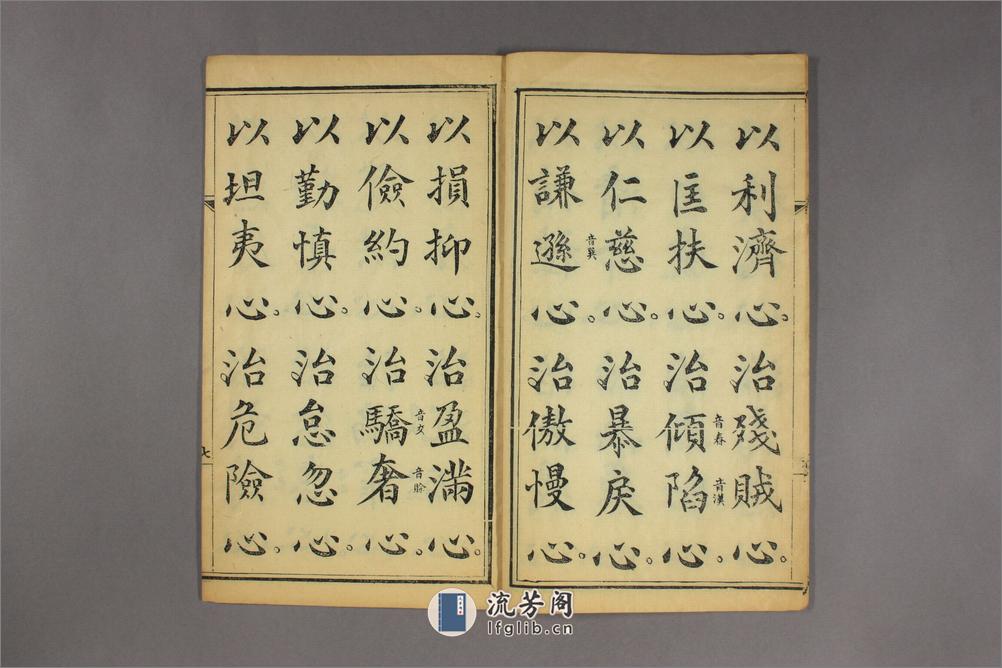 以利濟心。治殘賊心。
以匡扶心。治傾陷心。
音春
音漢
以仁慈心。治暴戾心。
以謙遜心。治傲慢心。
音巽
以損抑心。治盈滿心。
以儉約心。治驕奢心。
音賒
以勤慎心。治怠忽心。
以坦夷心。治危險心。
七
流芳阁
lfglib.cn